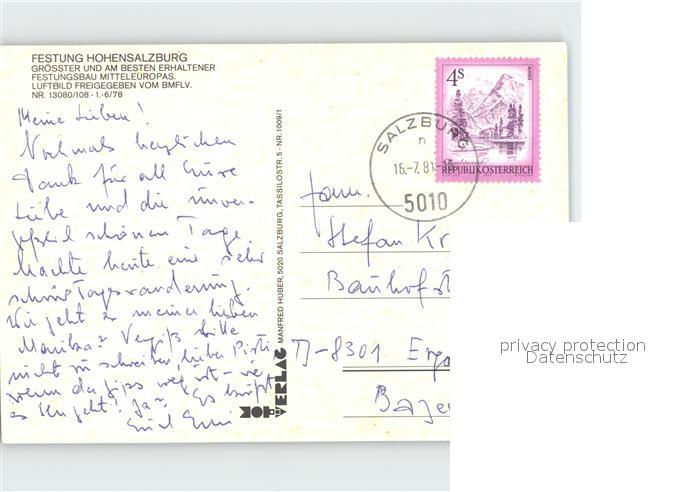 FESTUNG HOHENSALZBURG
GRÖSSTER UND AM BESTEN ERHALTENER
FESTUNGSBAU MITTELEUROPAS.
LUFTBILD FREIGEGEBEN VOM BMFLV.
NR. 13080/108 - 1.-6/78
Meine Lieben!
Nochmals herzlichen
Dank für all Eure
Liebe und die unver-
geßl. schönen Tage.
Machte heute eine sehr
schöne Tageswanderung.
Wie geht es meiner lieben
Marika? Vergiß bitte
nicht zu schreiben, liebe
wenn der Gips weg ist - wie
es geht! Ja? Es
MANFRED HUBER, 5020 SALZBURG, TASSILOSTR. 5 - NR. 1009/1
VERLAG
4S
REPUBLIK ÖSTERREICH
SALZBURG
n
16.-7.81
5010
Fam.
Stefan Kr
Bauhofst
D-8301 Ergo
Baye
privacy protection
Datenschutz